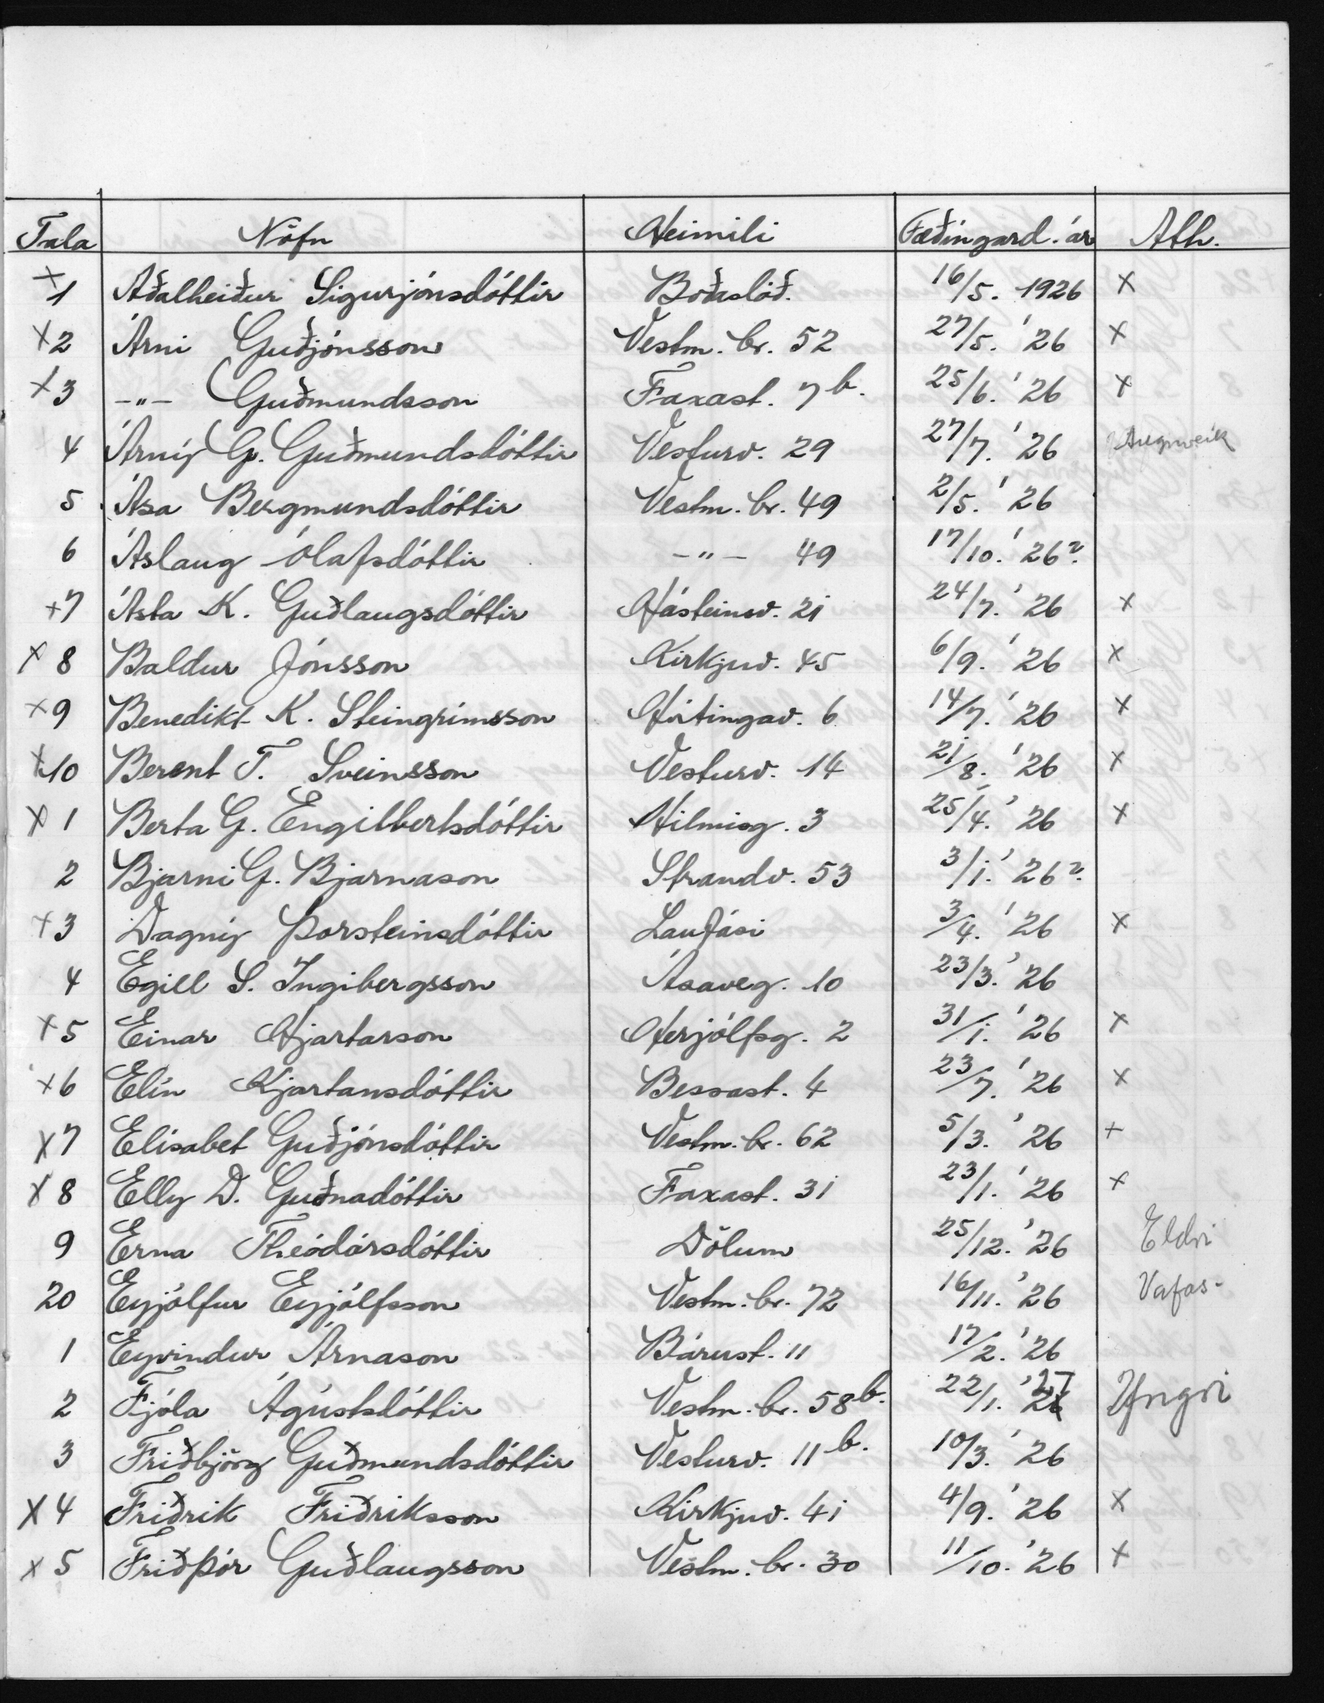 Tala Nöfn Heimili Fæðingard. ár Ath.
x1 Aðalheiður Sigurjónsdóttir Boðaslóð. 16/5. 1926 x
x2 Árni Guðjónsson Vestm. br. 52 27/5. '26 x
x3 -"- Guðmundsson Faxast. 7 b. 25/6. '26 x
4 Árný G. Guðmundsdóttir Vesturv. 29 27/7. '26 Augnveik
5 Ása Bergmundsdóttir Vestm. br. 49 2/5. '26
6 Áslaug Ólafsdóttir -"- 49 17/10. '26?
x7 Ásta K. Guðlaugsdóttir Hásteinsv. 21 24/7. '26 x
x 8 Baldur Jónsson Kirkjuv. 45 6/9. '26 x
x9 Benedikt K. Steingrímsson Hvítingav. 6 14/7. '26 x
x10 Berent T. Sveinsson Vesturv. 14 21/8. '26 x
x 1 Berta G. Engilbertsdóttir Hilmisg. 3 25/4. '26 x
2 Bjarni G. Bjarnason Strandv. 53 3/1. '26?
x3 Dagný Þorsteinsdóttir Laufási 3/4. '26 x
4 Egill S. Ingibergsson Ásaveg. 10 23/3. '26
x 5 Einar Hjartarson Herjólfsg. 2 31/1. '26 x
x6 Elín Kjartansdóttir Bessast. 4 23/7. '26 x
x7 Elísabet Guðjónsdóttir Vestm. br. 62 5/3. '26 x
x 8 Elly D. Guðnadóttir Faxast. 31 23/1. '26 x
9 Erna Theódórsdóttir Dölum 25/12. '26 Eldri
20 Eyjólfur Eyjólfsson Vestm. br. 72 16/11. '26 Vafas-
1 Eyvindur Árnason Bárust. 11 17/2. '26
2 Fjóla Ágústsdóttir Vestm. br. 58 b. 22/1. '27 Yngri
3 Friðbjörg Guðmundsdóttir Vesturv. 11 b. 10/3. '26
x 4 Friðrik Friðriksson Kirkjuv. 41 4/9. '26 x
x 5 Friðþór Guðlaugsson Vestm. br. 30 11/10. '26 x